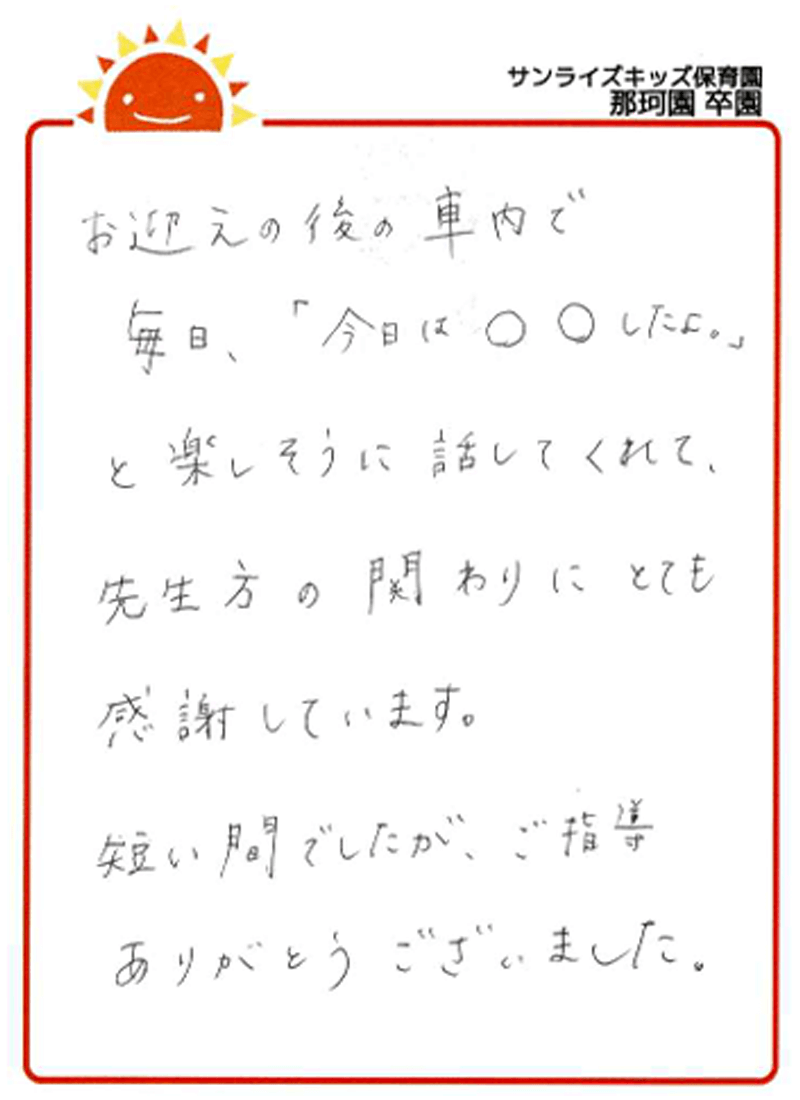 サンライズキッズ保育園
那珂園 卒園
お迎えの後の車内で
毎日、「今日は○○したよ。」
と楽しそうに話してくれて、
先生方の関わりにとても
感謝しています。
短い間でしたが、ご指導
ありがとうございました。